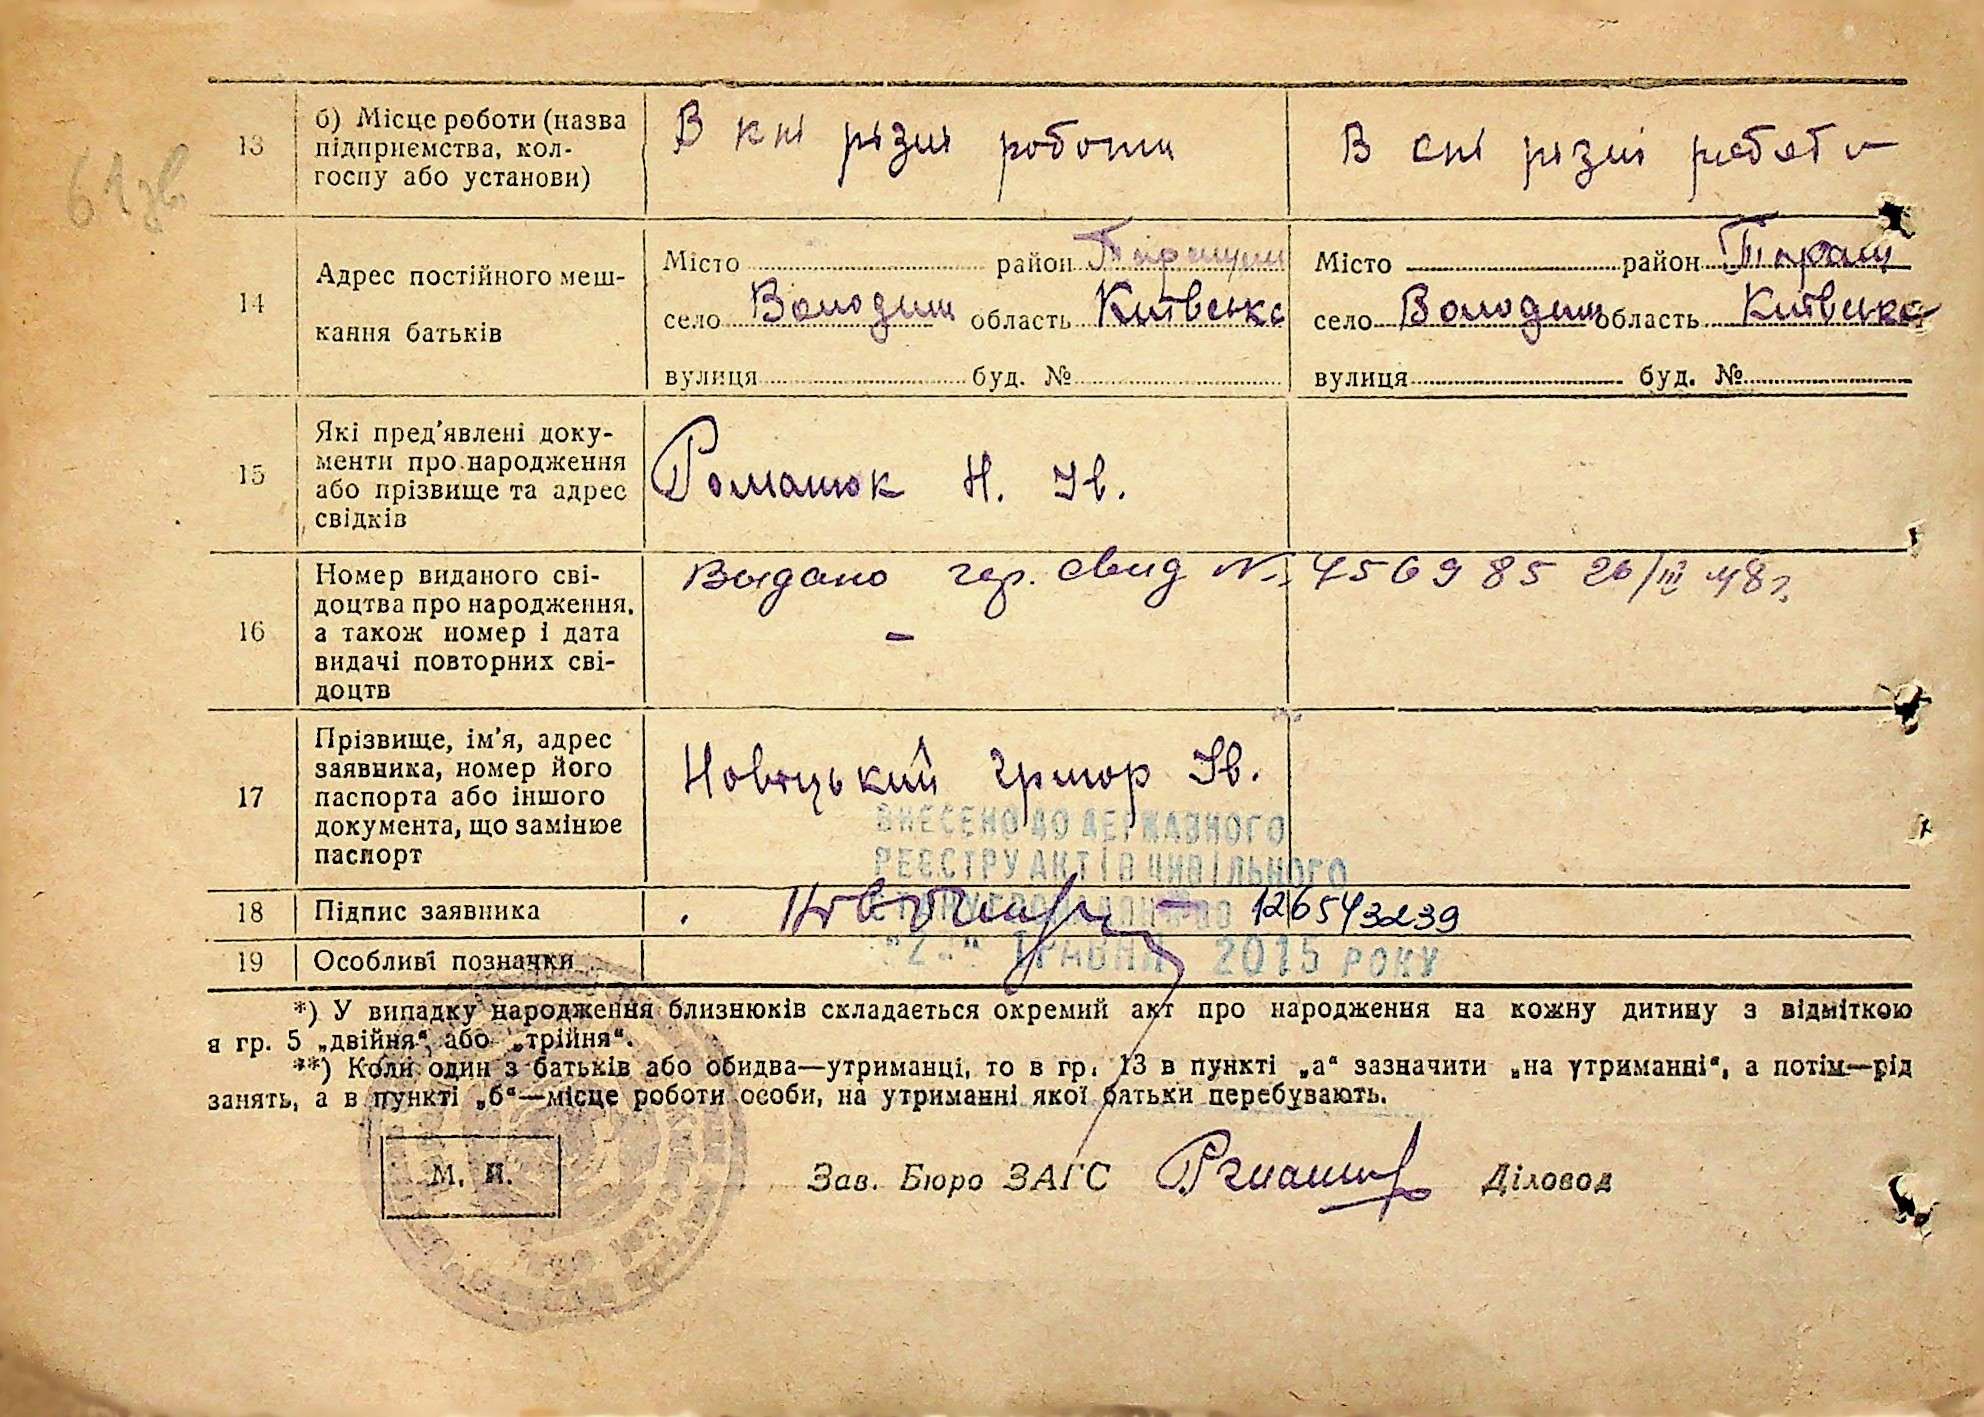 61 зв.
13 б) Місце роботи (назва підприємства, колгоспу або установи) В кні різні роботи В спі різні роботи
14 Адрес постійного мешкання батьків
Місто район Місто район Таращ
село Володим область Київська село Володим область Київська
вулиця буд. № вулиця буд. №
15 Які пред'явлені документи про народження або прізвище та адрес свідків Романюк Н. Ів.
16 Номер виданого свідоцтва про народження, а також номер і дата видачі повторних свідоцтв Выдано гер. свид № 456985 26/III 48 г.
–
17 Прізвище, ім'я, адрес заявника, номер його паспорта або іншого документа, що замінює паспорт Новіцький Григор Ів.
ВНЕСЕНО ДО ДЕРЖАВНОГО
РЕЄСТРУ АКТІВ ЦИВІЛЬНОГО
18 Підпис заявника 126543239
ТРАВНЯ 2015 РОКУ
19 Особливі позначки
*) У випадку народження близнюків складається окремий акт про народження на кожну дитину з відміткою
в гр. 5 „двійня“, або „трійня“.
**) Коли один з батьків або обидва—утриманці, то в гр. 13 в пункті „а“ зазначити „на утриманні“, а потім—рід
занять, а в пункті „б“—місце роботи особи, на утриманні якої батьки перебувають.
М. П.
Зав. Бюро ЗАГС Діловод